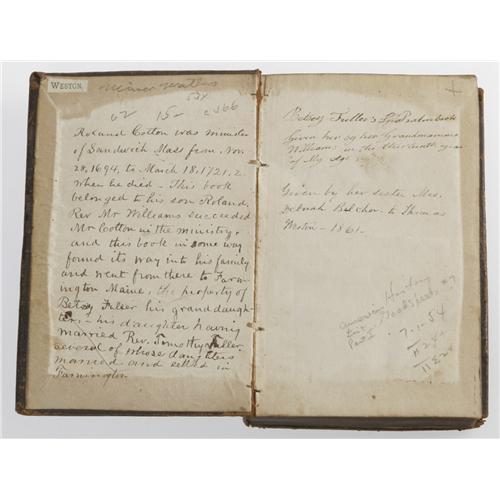 WESTON.
62 15-
Roland Cotton was minister
of Sandwich Mass from Nov.
28, 1694, to March 18, 1721.2
when he died - This book
belonged to his son Roland.
Rev Mr Williams succeeded
Mr Cotton in the ministry,
and this book in some way
found its way into his family
and went from there to Farm-
ington Maine, the property of
Betsy Fuller his granddaugh-
ter, - his daughter having
married Rev. Timothy Fuller
several of whose daughters
married and settled in
Farmington
Betsey Fuller's Psalm book
Given her by her Grandmamma
Williams in the thirteenth year
of My Age
Given by her sister Mrs.
Deborah Belcher to Thomas
Weston - 1861-
7-1-54